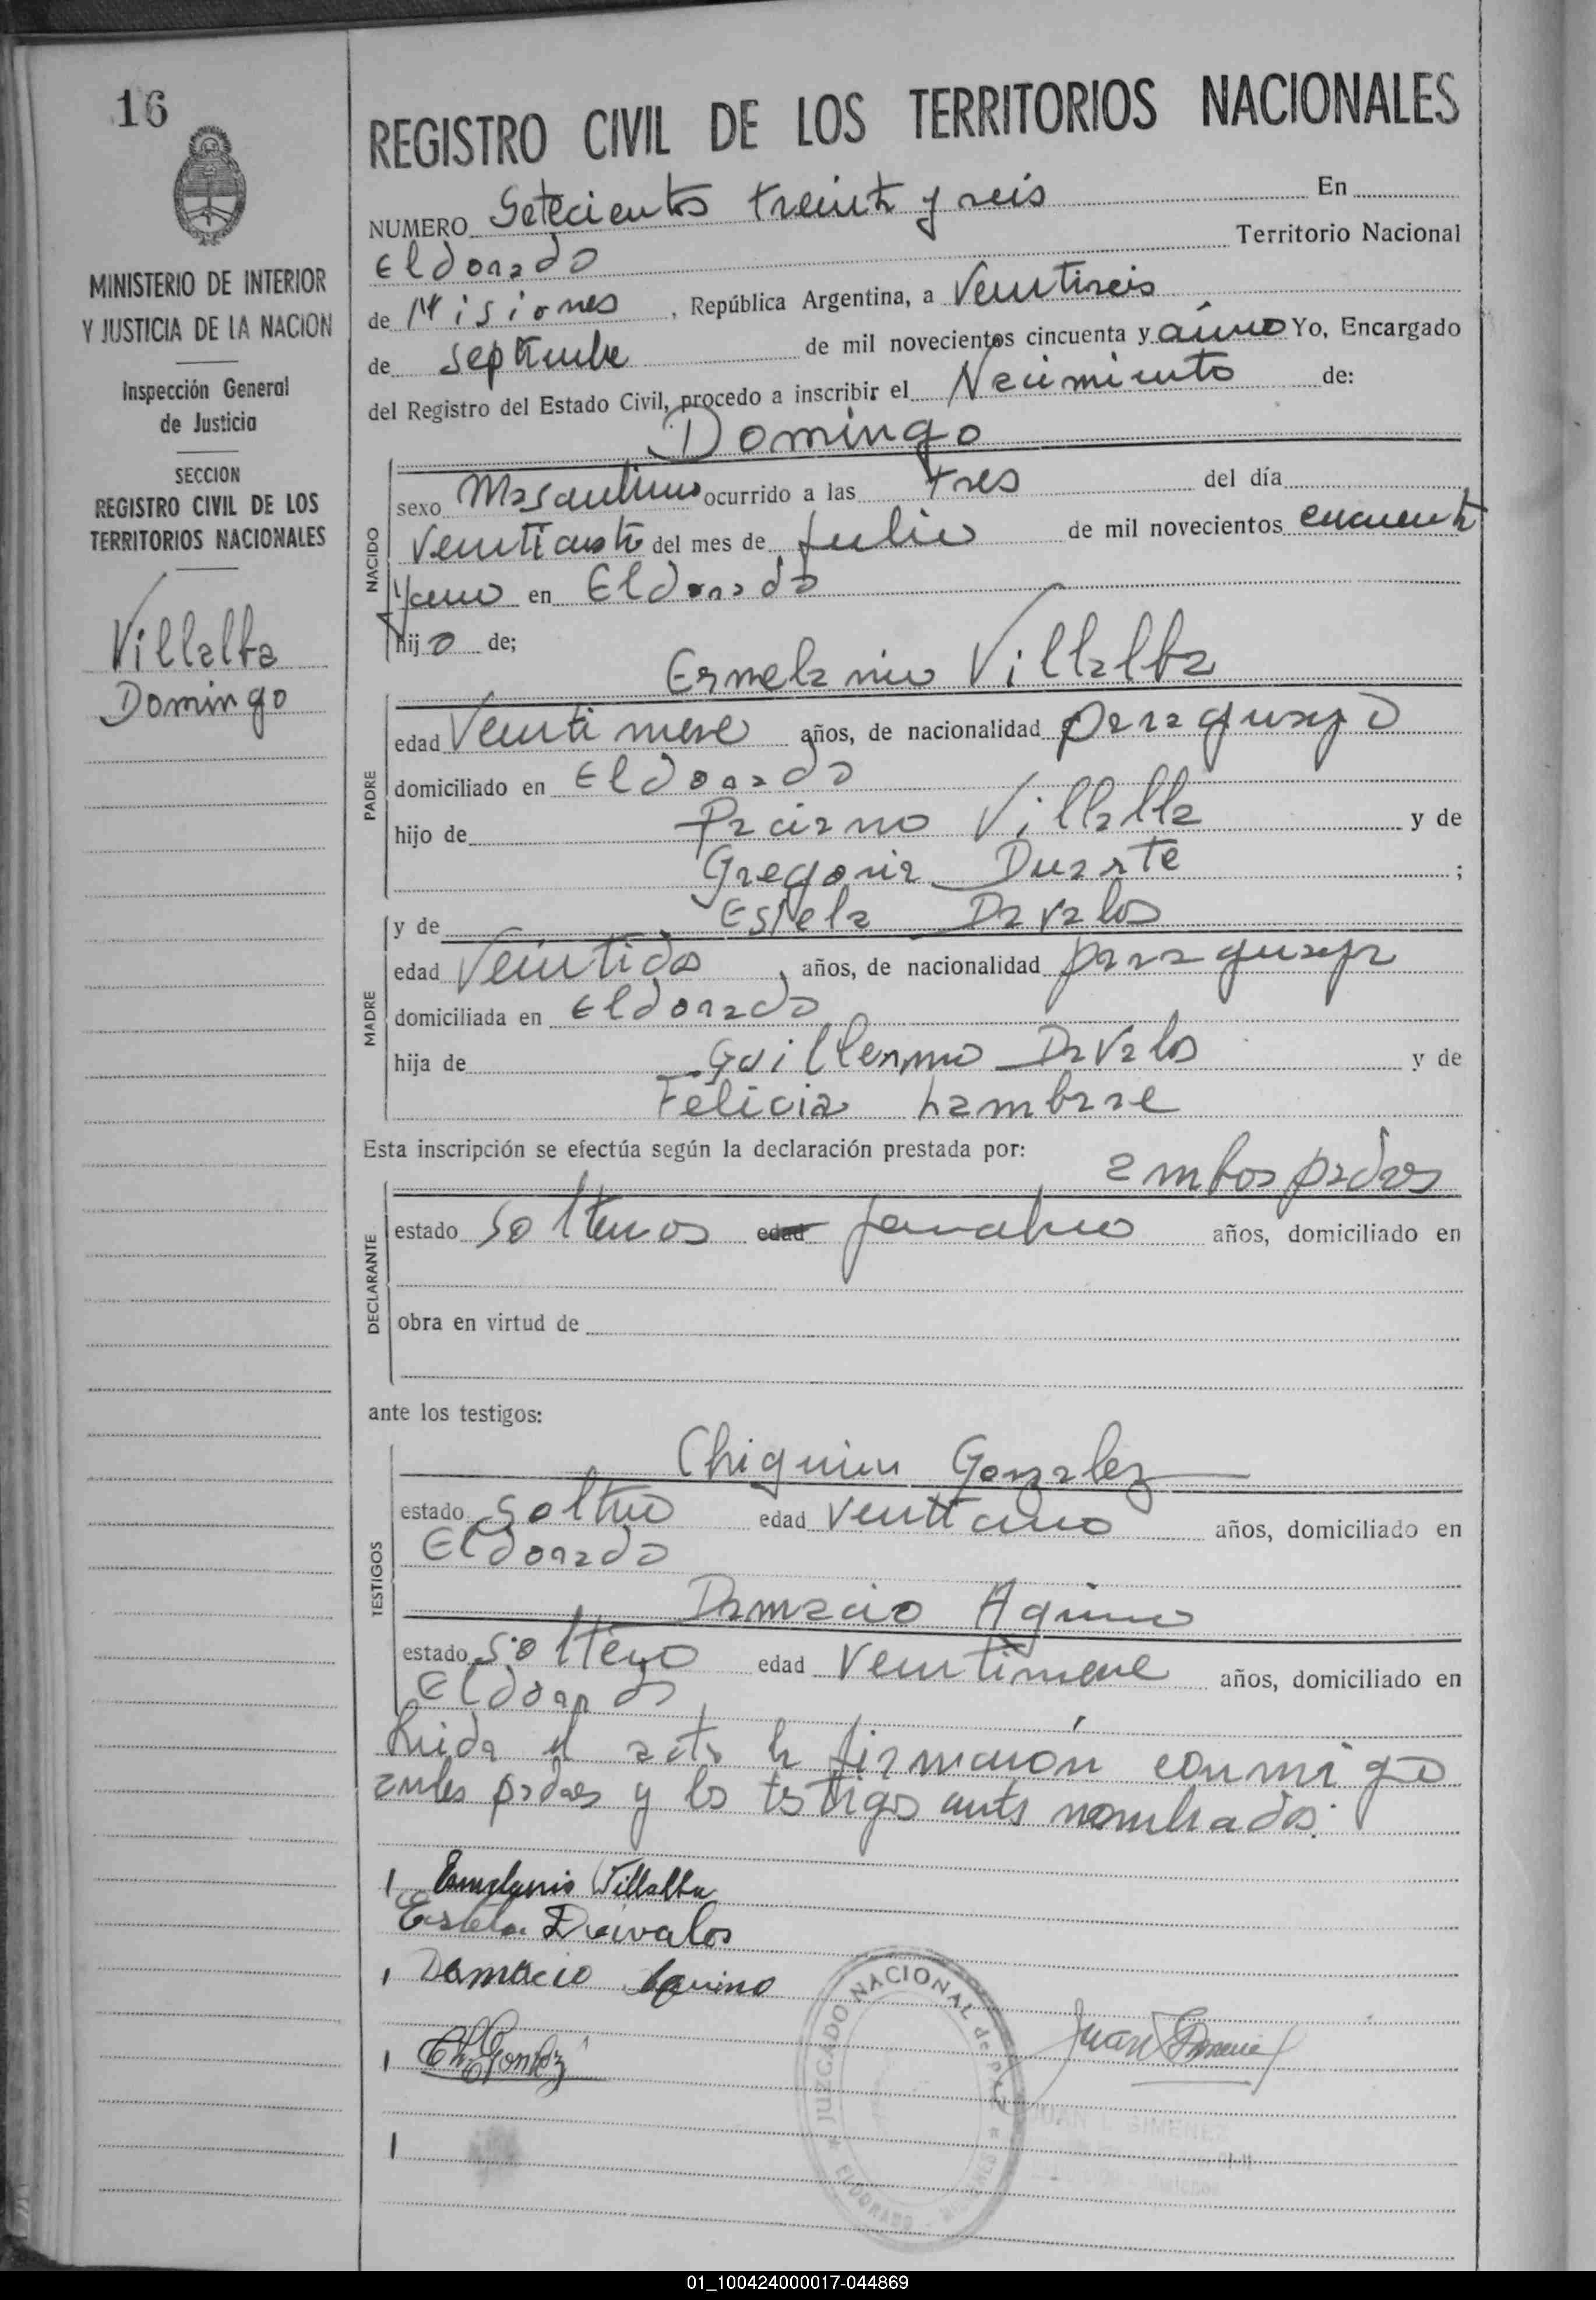 16
REGISTRO CIVIL DE LOS TERRITORIOS NACIONALES
MINISTERIO DE INTERIOR
Y JUSTICIA DE LA NACION
Inspección General
de Justicia
SECCION
REGISTRO CIVIL DE LOS
TERRITORIOS NACIONALES
Villalba
Domingo
NUMERO Setecientos treinta y seis En
Eldorado Territorio Nacional
de Misiones, República Argentina, a Veintiseis
de Septiembre de mil novecientos cincuenta y cinco Yo, Encargado
del Registro del Estado Civil, procedo a inscribir el Nacimiento de:
Domingo
NACIDO
sexo Masculino ocurrido a las tres del día
Veinticuatro del mes de Julio de mil novecientos cincuenta
y cinco en Eldorado
hijo de;
Ermelanio Villalba
PADRE
edad Veintinueve años, de nacionalidad paraguayo
domiciliado en Eldorado
hijo de Paciano Villalba y de
Gregoria Duarte ;
MADRE
y de Estela Davalos
edad Veintidos, años, de nacionalidad paraguaya
domiciliada en Eldorado
hija de Guillermo Davalos y de
Felicia Lambare
Esta inscripción se efectúa según la declaración prestada por:
ambos padres
DECLARANTE
estado solteros edad años, domiciliado en
obra en virtud de
ante los testigos:
TESTIGOS
Gonzalez
estado soltero edad Veinticinco años, domiciliado en
Eldorado
Damacio Aquino
estado soltero edad Veintinueve años, domiciliado en
Eldorado
Leida el acta la firmaron conmigo
ambos padres y los testigos antes nombrados.
Ermelanio Villalba
Estela Davalos
Damacio Aquino
Ch Gonzlez
JUZGADO NACIONAL de PAZ
* ELDORADO - MISIONES *
Juan Gimenez
JUAN L. GIMENEZ
01_100424000017-044869